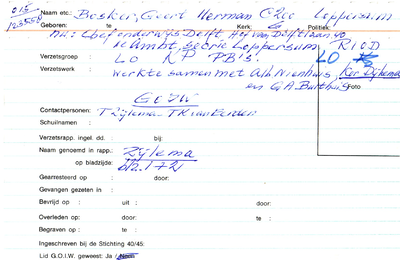 Naam etc.: Bosker, Geert Herman Loppersum
Geboren: te: Kerk: Politiek:
nu: Chef onderwijs Delft, Hof van Delftlaan 40
secrie Loppersum RIOD
Verzetsgroep : LO KP PBIS. LO
Verzetswerk : werkte samen met Alb Nienhuis, Ker Zijlema
en G.A. Bulthuis Foto
GEZW
Contactpersonen: T Zijlema - TK van Eerden
Schuilnamen :
Verzetsrapp. ingel. dd. : bij:
Naam genoemd in rapp.: Zijlema
op bladzijde: blz. 172
Gearresteerd op : door:
Gevangen gezeten in :
Bevrijd op : uit : door:
Overleden op: door: te :
Begraven op : te :
Ingeschreven bij de Stichting 40/45:
Lid G.O.I.W. geweest: Ja / Neen